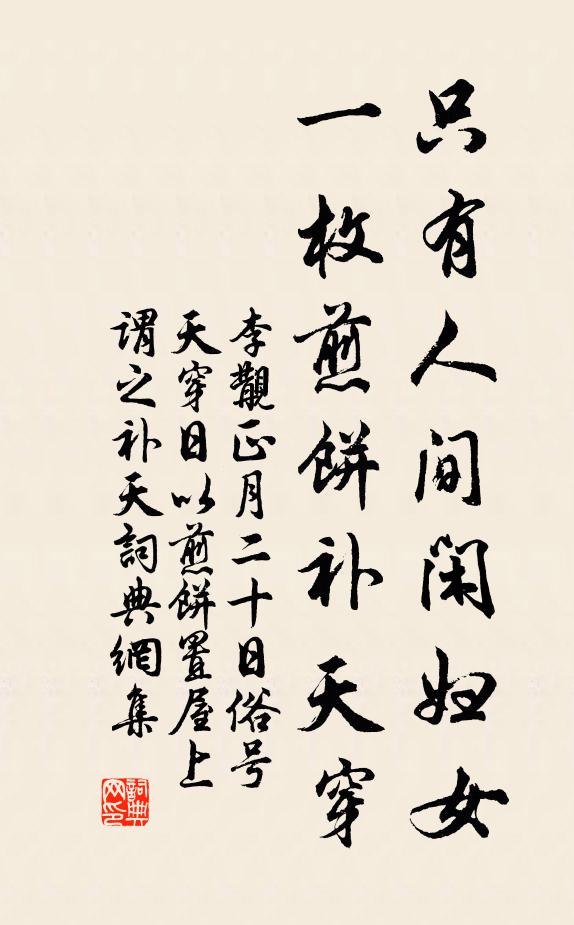 只有人间闲妇女
一枚煎餅补天穿
李觀正月二十日俗号
天穿日以煎餅置屋上
谓之补天詞典網集
詞典网印